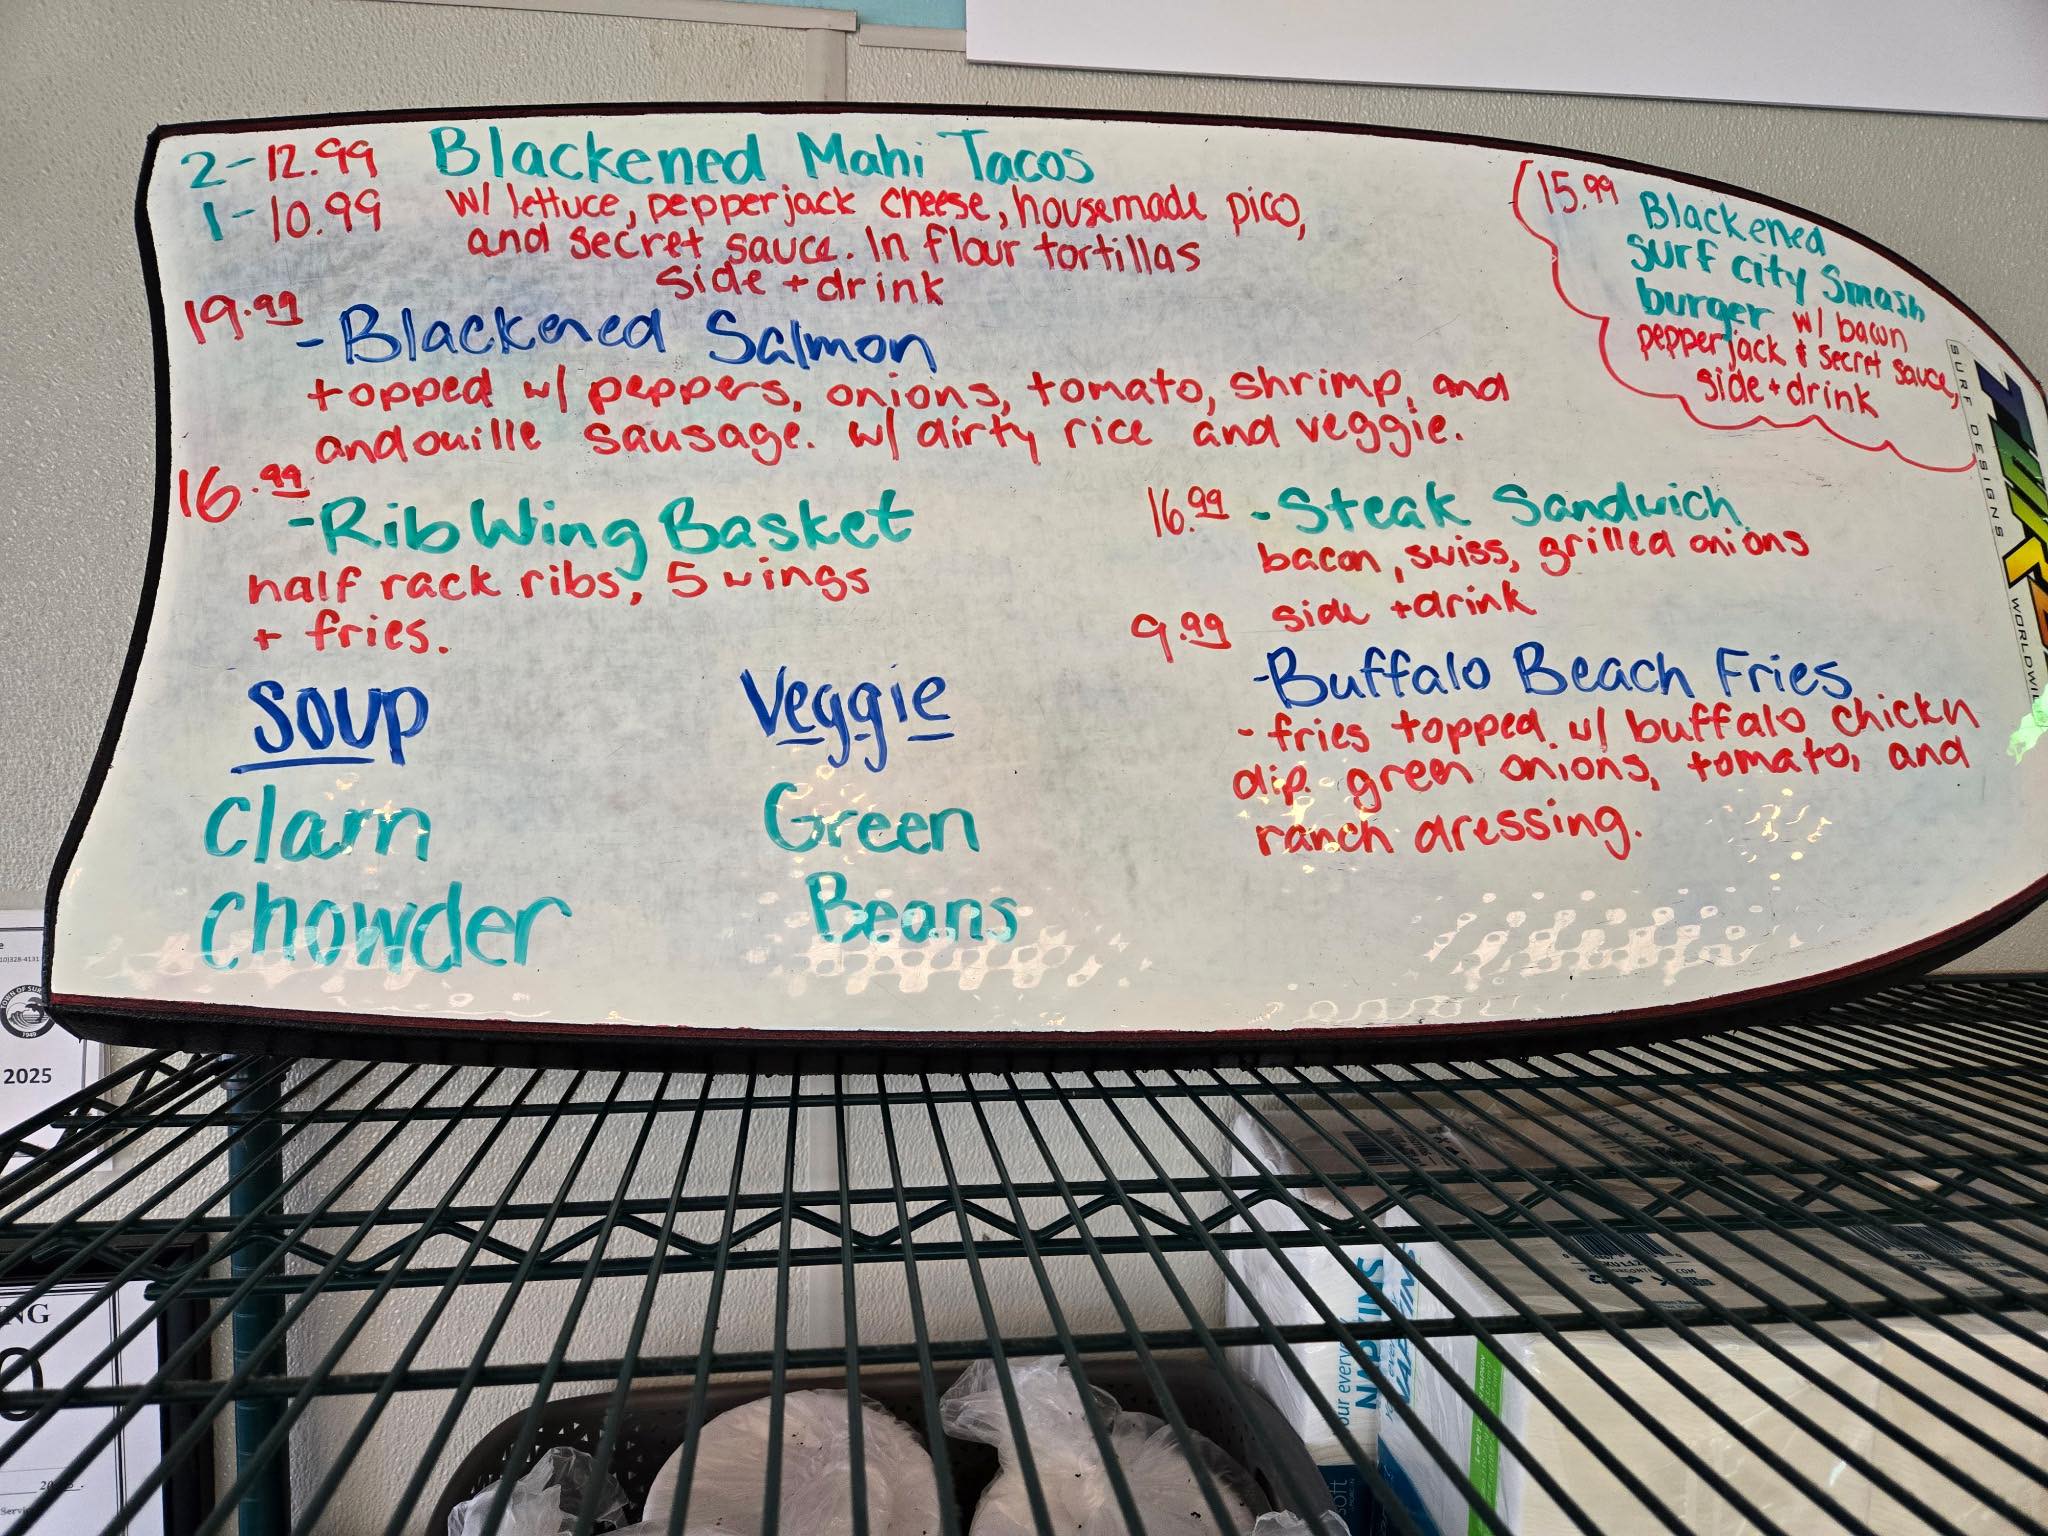 2-12.99 Blackened Mahi Tacos
1-10.99 w/ lettuce, pepperjack cheese, housemade pico,
and secret sauce. In flour tortillas
side + drink
19.99
- Blackened Salmon
topped w/ peppers, onions, tomato, shrimp, and
andouille sausage. w/ dirty rice and veggie.
16.99
- Rib Wing Basket
half rack ribs, 5 wings
+ fries.
Soup
Clam
Chowder
Veggie
Green
Beans
15.99 Blackened
surf city Smash
burger w/ bacon
pepperjack & secret sauce,
side + drink
16.99 - Steak Sandwich
bacon, swiss, grilled onions
side + drink
9.99
- Buffalo Beach Fries
- fries topped w/ buffalo chickn
dip. green onions, tomato, and
ranch dressing.
SURF DESIGNS
2025
NAPKINS